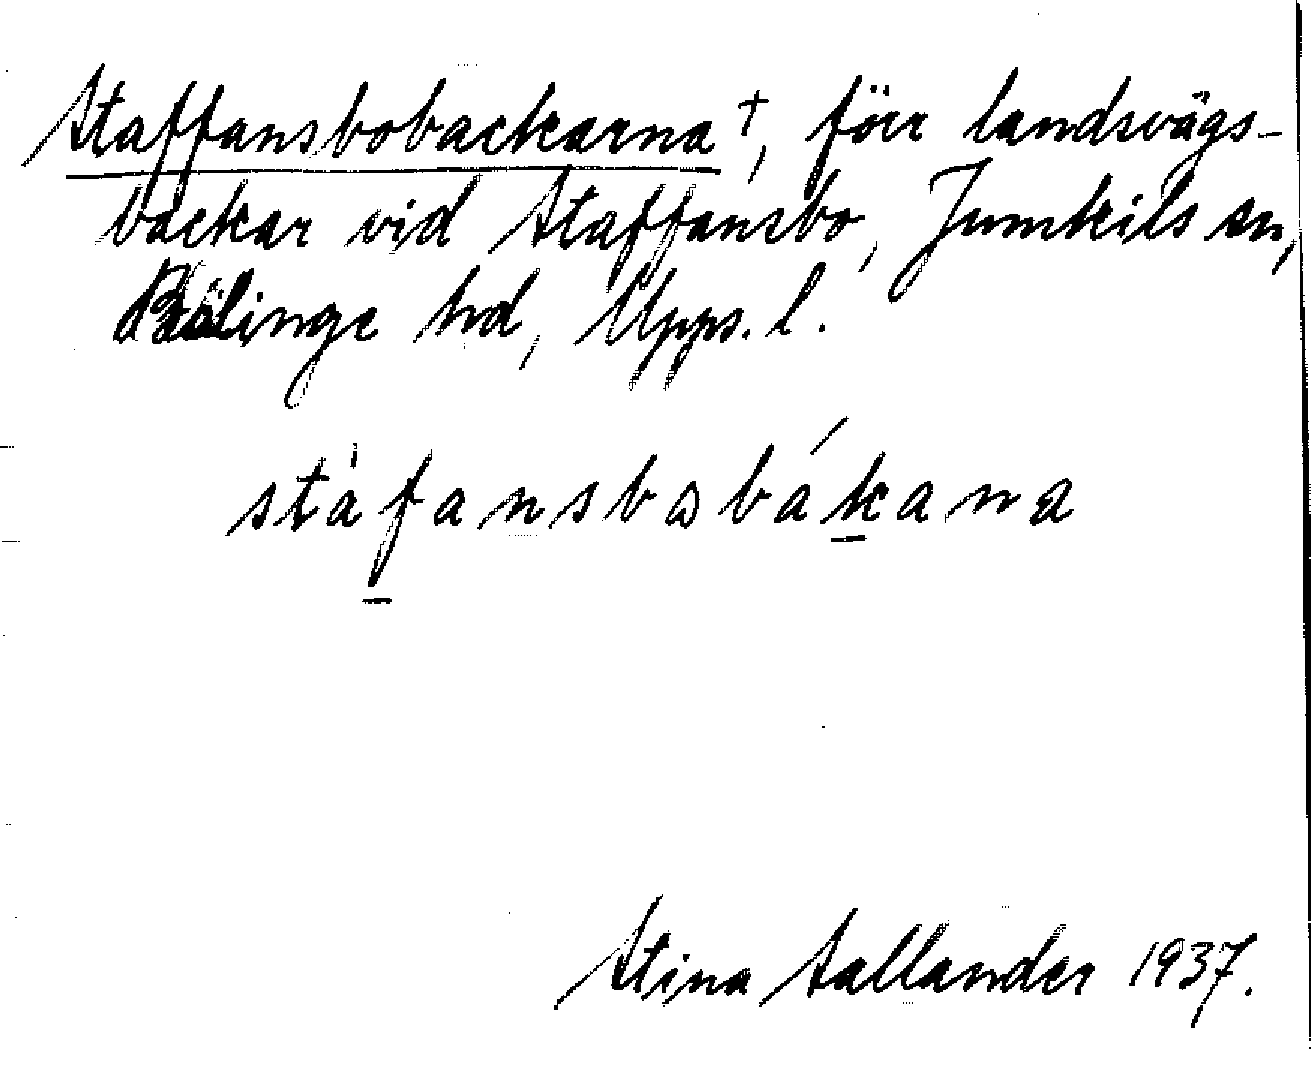 Staffansbobackarna†, förr landsvägs-
backar vid Staffansbo, Jumkils sn,
Bälinge hd, Upps. l.
stàf̠ansbωbák̠ana
Stina Sallander 1937.